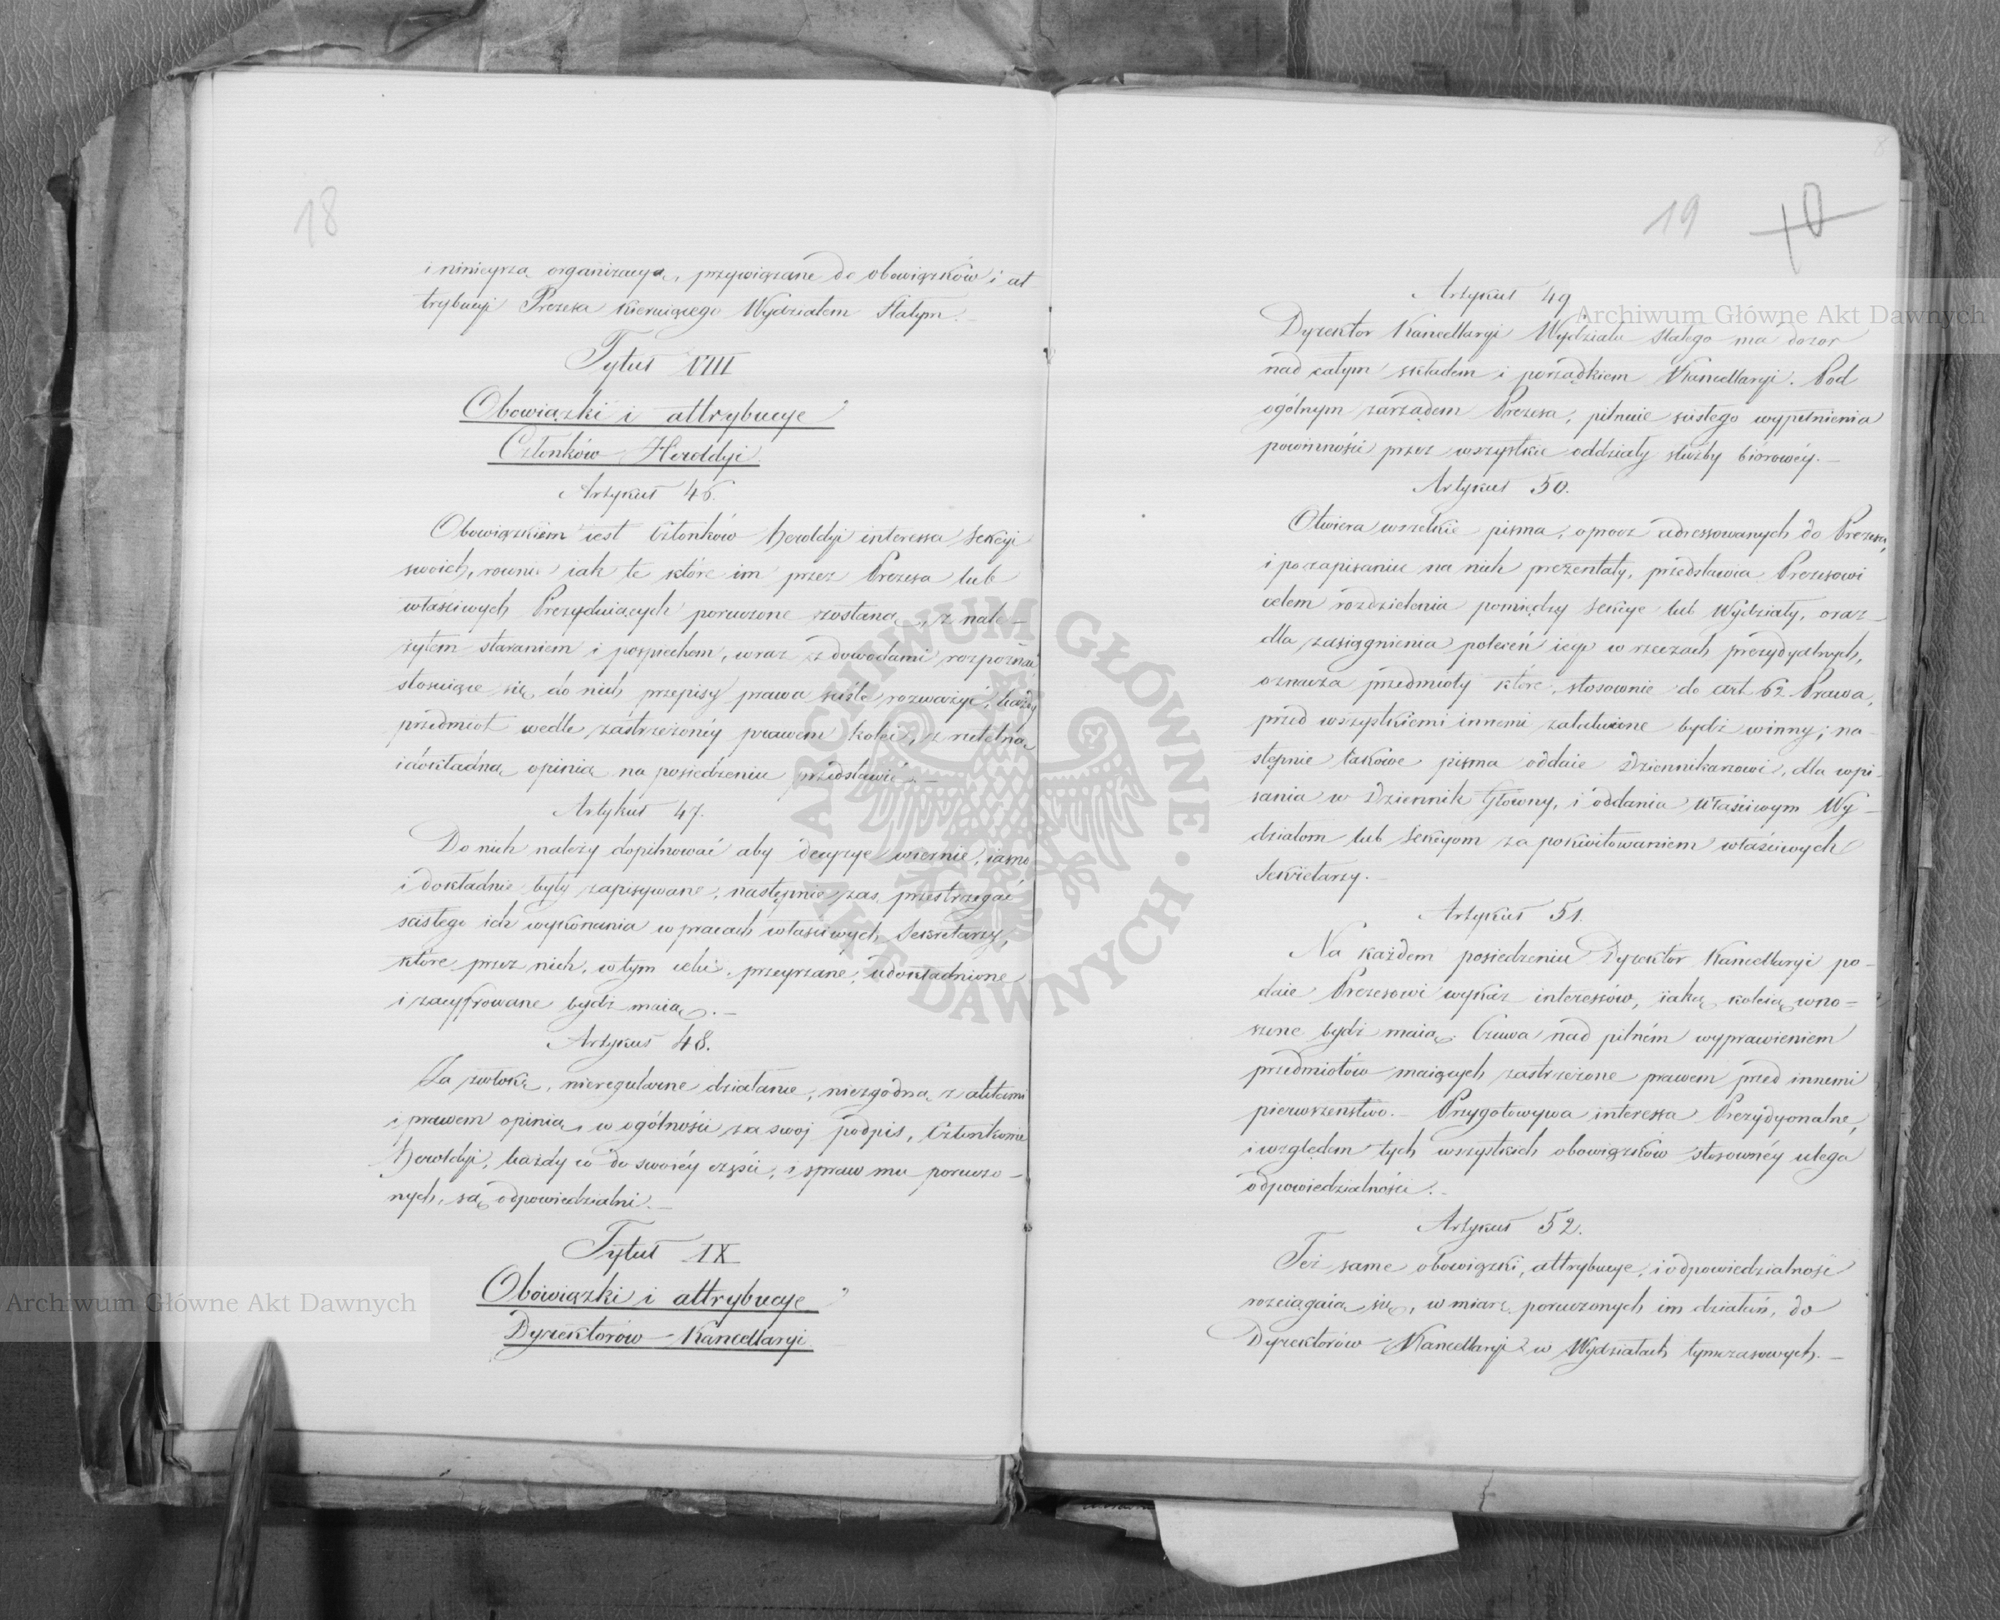 18
i ninieyszą organizacyą, przywiązane do obowiązków i at
trybucyi Prezesa kieruiącego Wydziałem Stałym.
Tytuł VIII
Obowiązki i attrybucye
Członków Heroldyi
Artykuł 46.
Obowiązkiem iest Członków Heroldyi interessa Sekcyi
swoich, równie iak te które im przez Prezesa lub
właściwych Prezyduiących poruczone zostaną, z nale-
żytem staraniem i pospiechem, wraz z dowodami rozpoznać
stosuiące się do nich przepisy prawa ściśle rozważyć, każdy
przedmiot wedle zastrzeżonéy prawem kolei, z rzetelną
i dokładną opinią na posiedzeniu przedstawić.-
Artykuł 47.
Do nich należy dopilnować aby decyzye wiernie, iasno
i dokładnie były zapisywane, następnie zaś przestrzegać
ścisłego ich wykonania w pracach właściwych Sekretarzy,
które przez nich, w tym celu, przeyrzane, udokładnione
i zacyfrowane bydź maią.-
Artykuł 48.
Za zwłokę, nieregularne działanie, niezgodną z aktami
i prawem opinią, w ogólności za swoy podpis, Członkowie
Heroldyi, każdy co do swoiéy części, i spraw mu poruczo-
nych, są odpowiedzialni.-
Tytuł IX
Obowiązki i attrybucye
Dyrektorów Kancellaryi
19
10
Artykuł 49
Dyrektor Kancellaryi Wydziału Stałego ma dozor
nad całym składem i porządkiem Kancellaryi. Pod
ogólnym zarządem Prezesa, pilnuie ścisłego wypełnienia
powinności przez wszystkie oddziały służby biórowéy.-
Artykuł 50.
Otwiera wszelkie pisma, oprocz adressowanych do Prezesa,
i po zapisaniu na nich prezentaty, przedstawia Prezesowi
celem rozdzielenia pomiędzy Sekcye lub Wydziały, oraz
dla zasiągnienia poleceń iego w rzeczach prezydyalnych,
oznacza przedmioty które, stosownie do art 62 Prawa,
przed wszystkiemi innemi załatwione bydź winny; na-
stępnie takowe pisma oddaie Dziennikarzowi, dla wpi-
sania w Dziennik Główny, i oddania właściwym Wy-
działom lub Sekcyom za pokwitowaniem właściwych
Sekretarzy.-
Artykuł 51.
Na każdem posiedzeniu Dyrektor Kancellaryi po-
daie Prezesowi wykaz interessów, iaką koleią wno-
szone bydź maią. Czuwa nad pilném wyprawieniem
przedmiotów maiących zastrzeżone prawem przed innemi
pierwszeństwo.- Przygotowywa interessa Prezydyonalne,
i względem tych wszystkich obowiązków stosownéy ulega
odpowiedzialności.-
Artykuł 52.
Też same obowiązki, attrybucye, i odpowiedzialność
rozciągaią się, w miarę poruczonych im działań, do
Dyrektorów Kancellaryi w Wydziałach tymczasowych.-
Archiwum Główne Akt Dawnych
Archiwum Główne Akt Dawnych
ARCHIWUM GŁÓWNE · AKT DAWNYCH ·